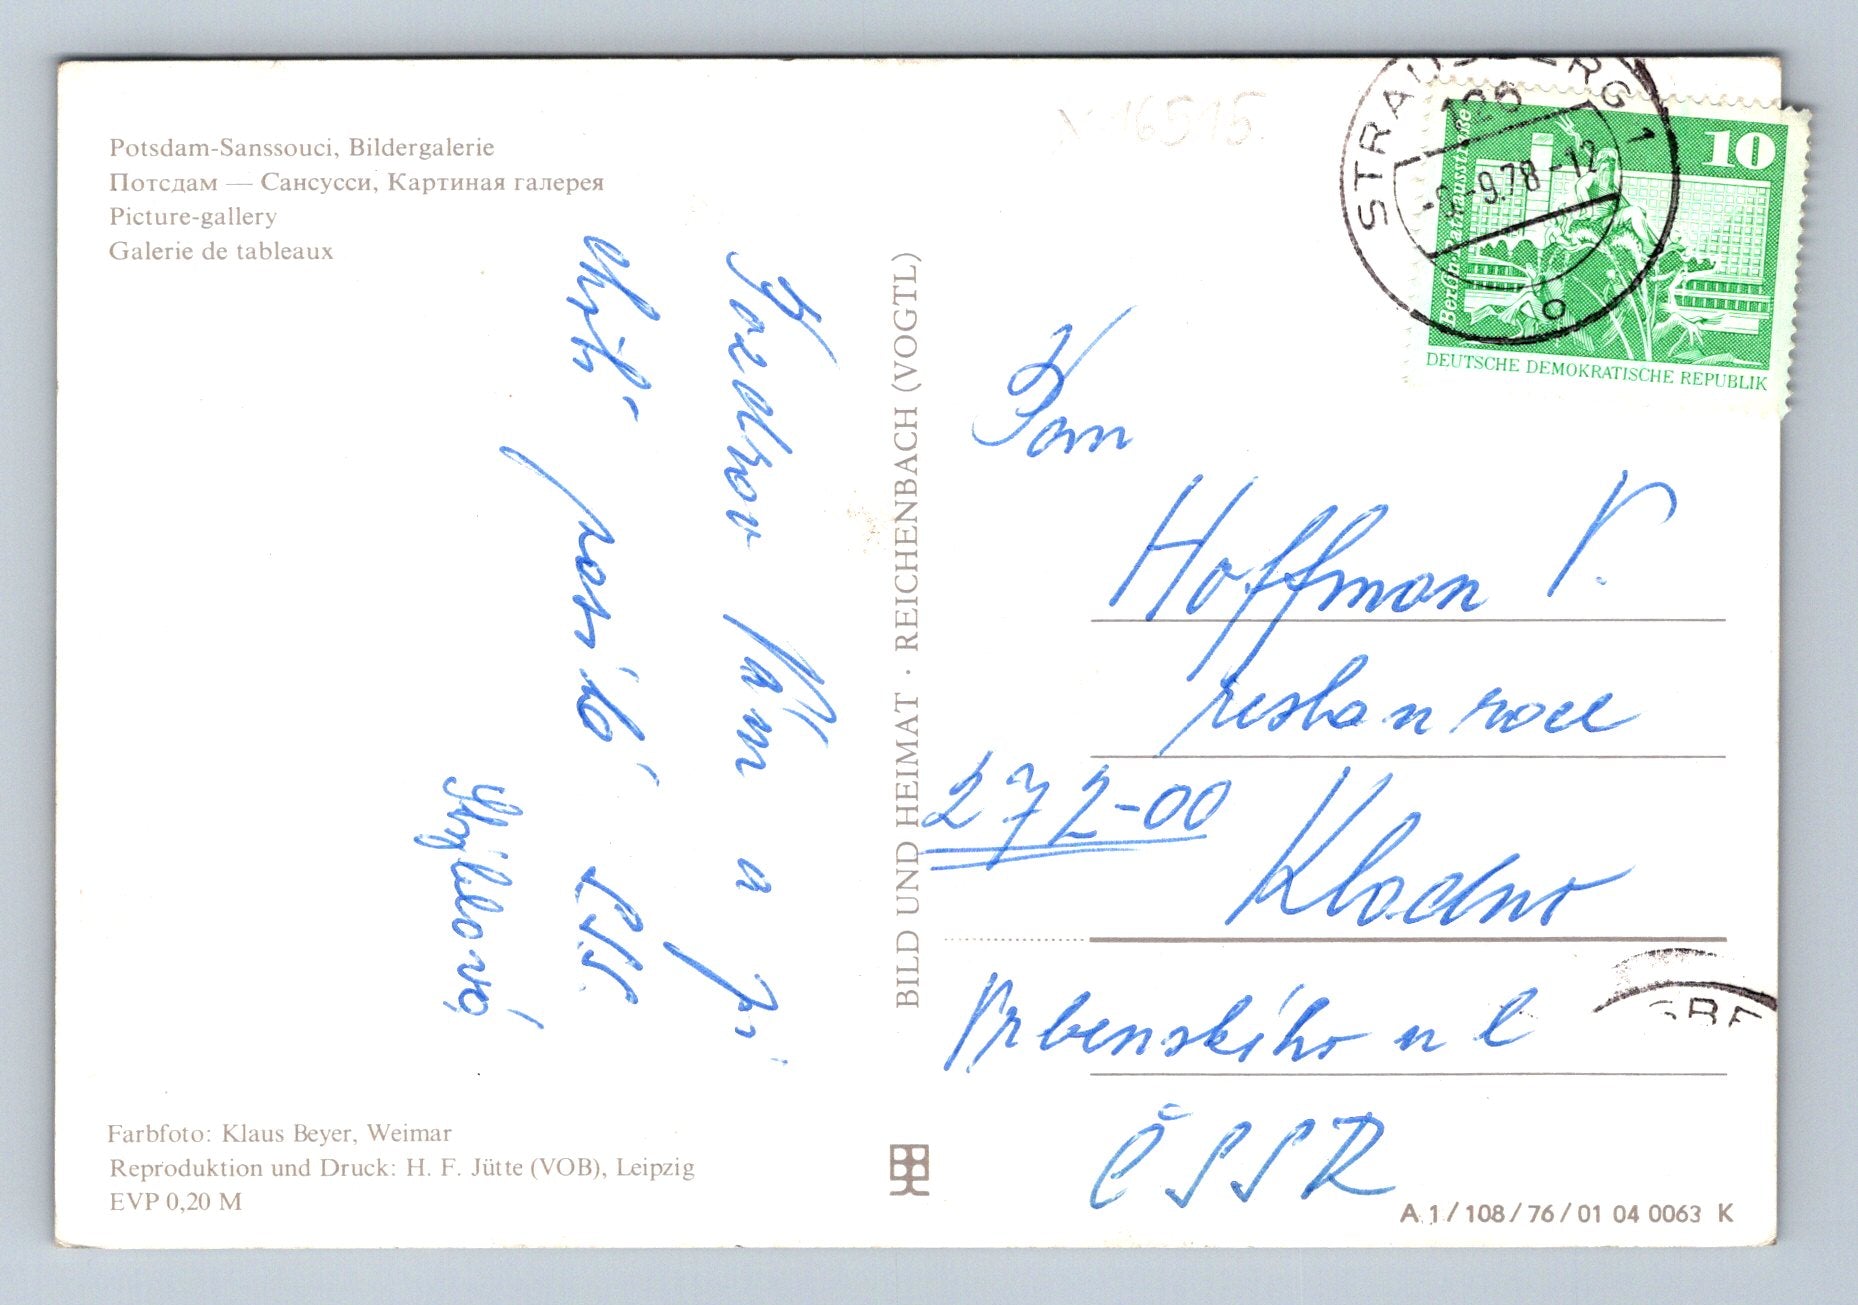 Potsdam-Sanssouci, Bildergalerie
Потсдам — Сансусси, Картиная галерея
Picture-gallery
Galerie de tableaux
Pozdrav Vám a
posílá
BILD UND HEIMAT · REICHENBACH (VOGTL)
16515
STRAUSBERG 1
126
-9.78-12
Berlin Rathausstraße
10
DEUTSCHE DEMOKRATISCHE REPUBLIK
Pan
Hoffman V.
272-00
Kladno
Vrbenského ul
ČSSR
Farbfoto: Klaus Beyer, Weimar
Reproduktion und Druck: H. F. Jütte (VOB), Leipzig
EVP 0,20 M
A 1/108/76/01 04 0063 K